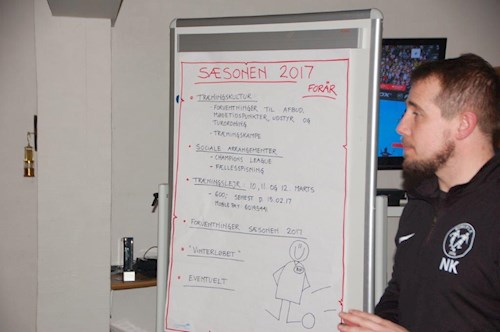 SÆSONEN 2017
FORÅR
• TRÆNINGSKULTUR
- FORVENTNINGER TIL AFBUD,
MØDETIDSPUNKTER, UDSTYR OG
TURORDNING
- TRÆNINGSKAMPE
• SOCIALE ARRANGEMENTER
- CHAMPIONS LEAGUE
- FÆLLESSPISNING
• TRÆNINGSLEJR: 10, 11 OG 12. MARTS
- 600,- SENEST D. 15.02.17
• FORVENTNINGER SÆSONEN 2017
• "VINTERLØBET"
• EVENTUELT
NK